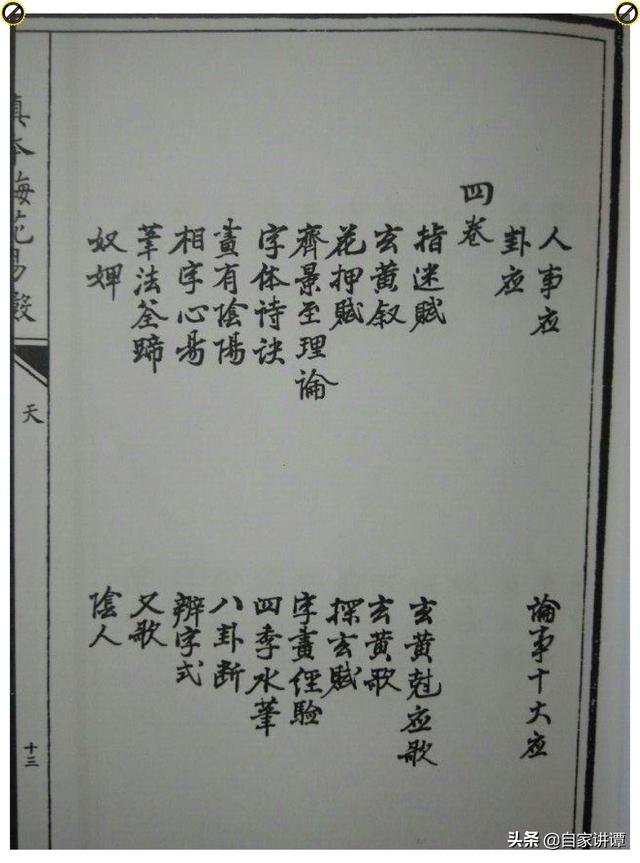 人事应
论事十大应
卦应
四卷
指迷賦
玄黄尅应歌
玄黄叙
玄黄歌
花押賦
探玄賦
齊景至理論
字畫俓驗
字体诗诀
四季水筆
畫有陰陽
八卦断
相字心易
辨字式
筆法筌蹄
又歌
奴婢
陰人
真本梅花易數
天
十三
头条 @自家讲谭